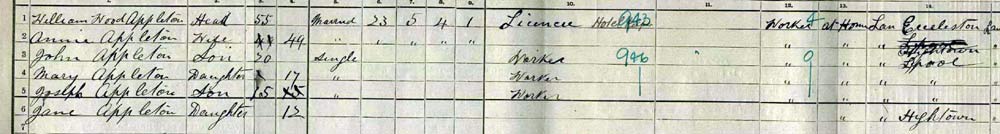 1 William Wood Appleton Head 55 Married 23 5 4 1 Licencee Hotel 943 Worker 4 at Home Lan Eccleston
2 Annie Appleton Wife 49 " " "
3 John Appleton Son 20 Single Worker 946 " 9 " " Lpool
4 Mary Appleton Daughter 17 " Worker " " " "
5 Joseph Appleton Son 15 Worker " " " "
6 Jane Appleton Daughter 12 " Hightown